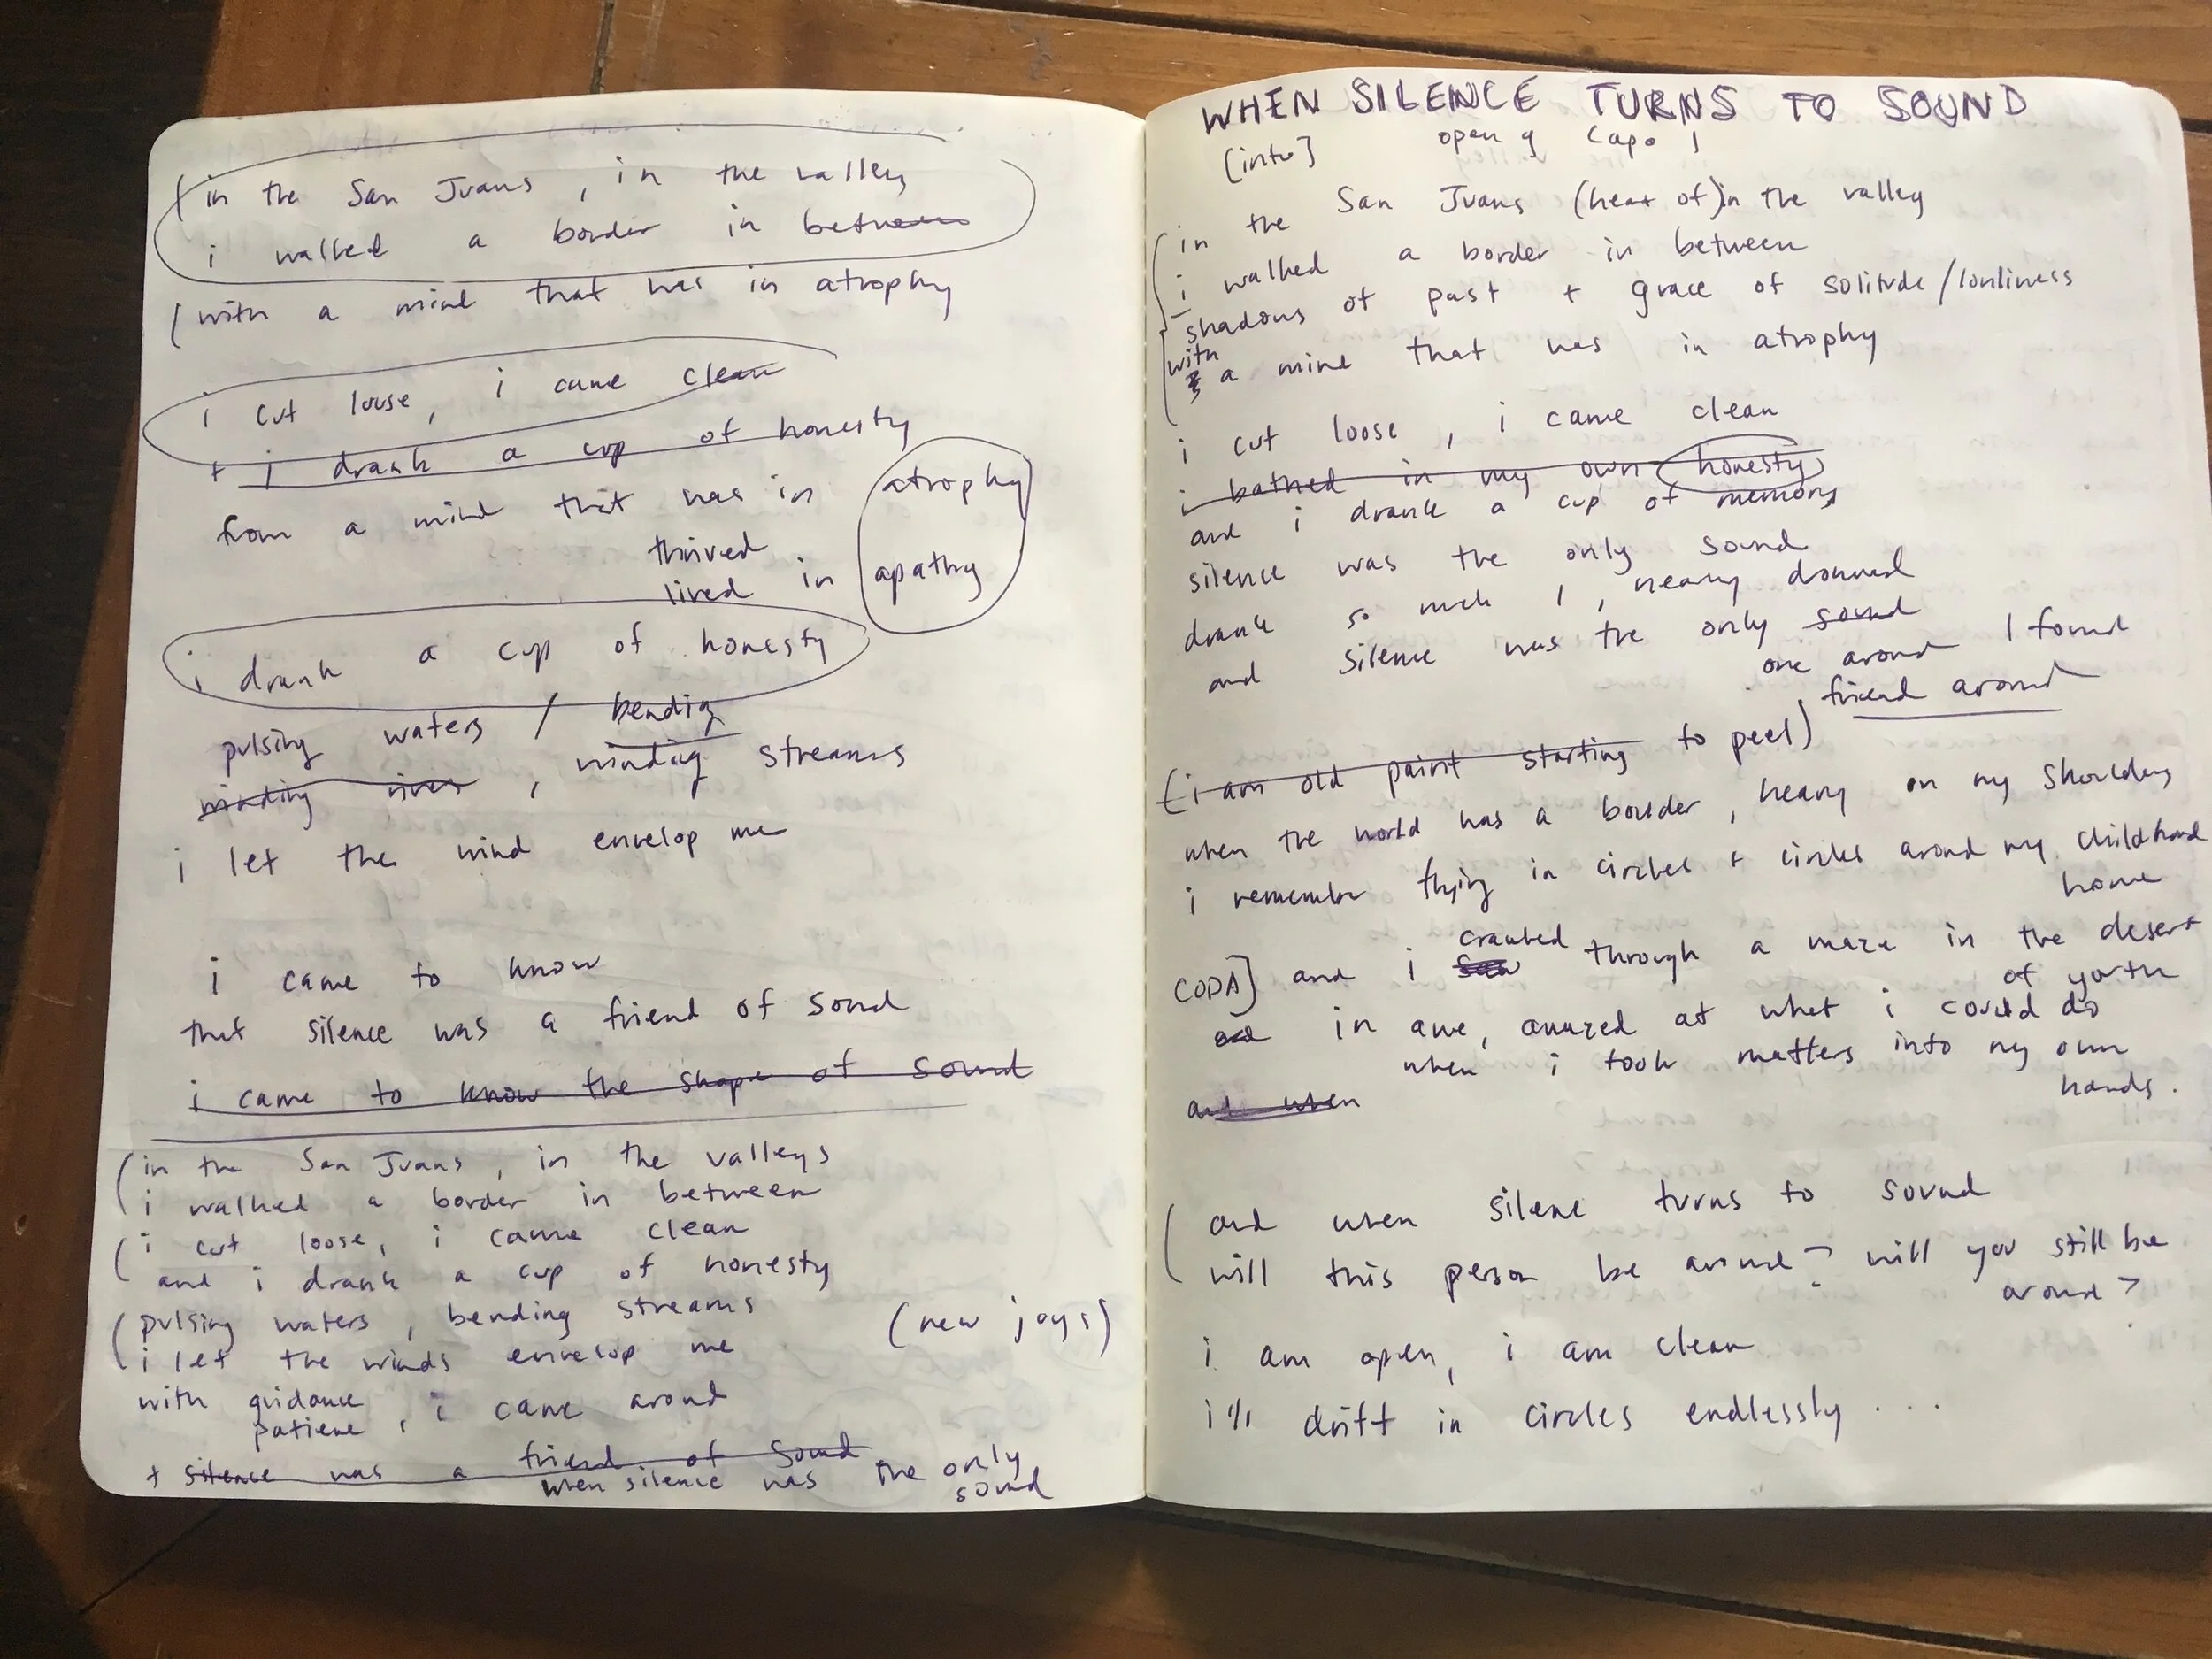 (in the San Juans, in the valley
i walked a border in between
(with a mind that was in atrophy
i cut loose, i came clean
+ i drank a cup of honesty
from a mind that was in atrophy
thrived
lived in apathy
i drank a cup of honesty
pulsing waters / bending
winding rives, winding streams
i let the wind envelop me
i came to know
that silence was a friend of sound
i came to know the shape of sound
(in the San Juans, in the valleys
i walked a border in between
(i cut loose, i came clean
and i drank a cup of honesty
(pulsing waters, bending streams (new joys)
i let the winds envelop me
with guidance, i came around
patience
+ silence was a friend of sound
when silence was the only
sound
WHEN SILENCE TURNS TO SOUND
[intro] open g capo 1
in the San Juans (heat of) in the valley
i walked a border in between
shadows of past + grace of solitude/lonliness
with
a mind that was in atrophy
i cut loose, i came clean
i bathed in my own honesty
and i drank a cup of memory
silence was the only sound
drank so much I, nearly drowned
and silence was the only sound
one around I found
friend around
(i am old paint starting to peel)
when the world was a boulder, heavy on my shoulders
i remember flying in circles + circles around my childhood
home
CODA] and i crawled through a maze in the desert
of youth
in awe, amazed at what i could do
when i took matters into my own
hands.
and when
(and when silence turns to sound
will this person be around? will you still be
around?
i am open, i am clean
i'll drift in circles endlessly ...